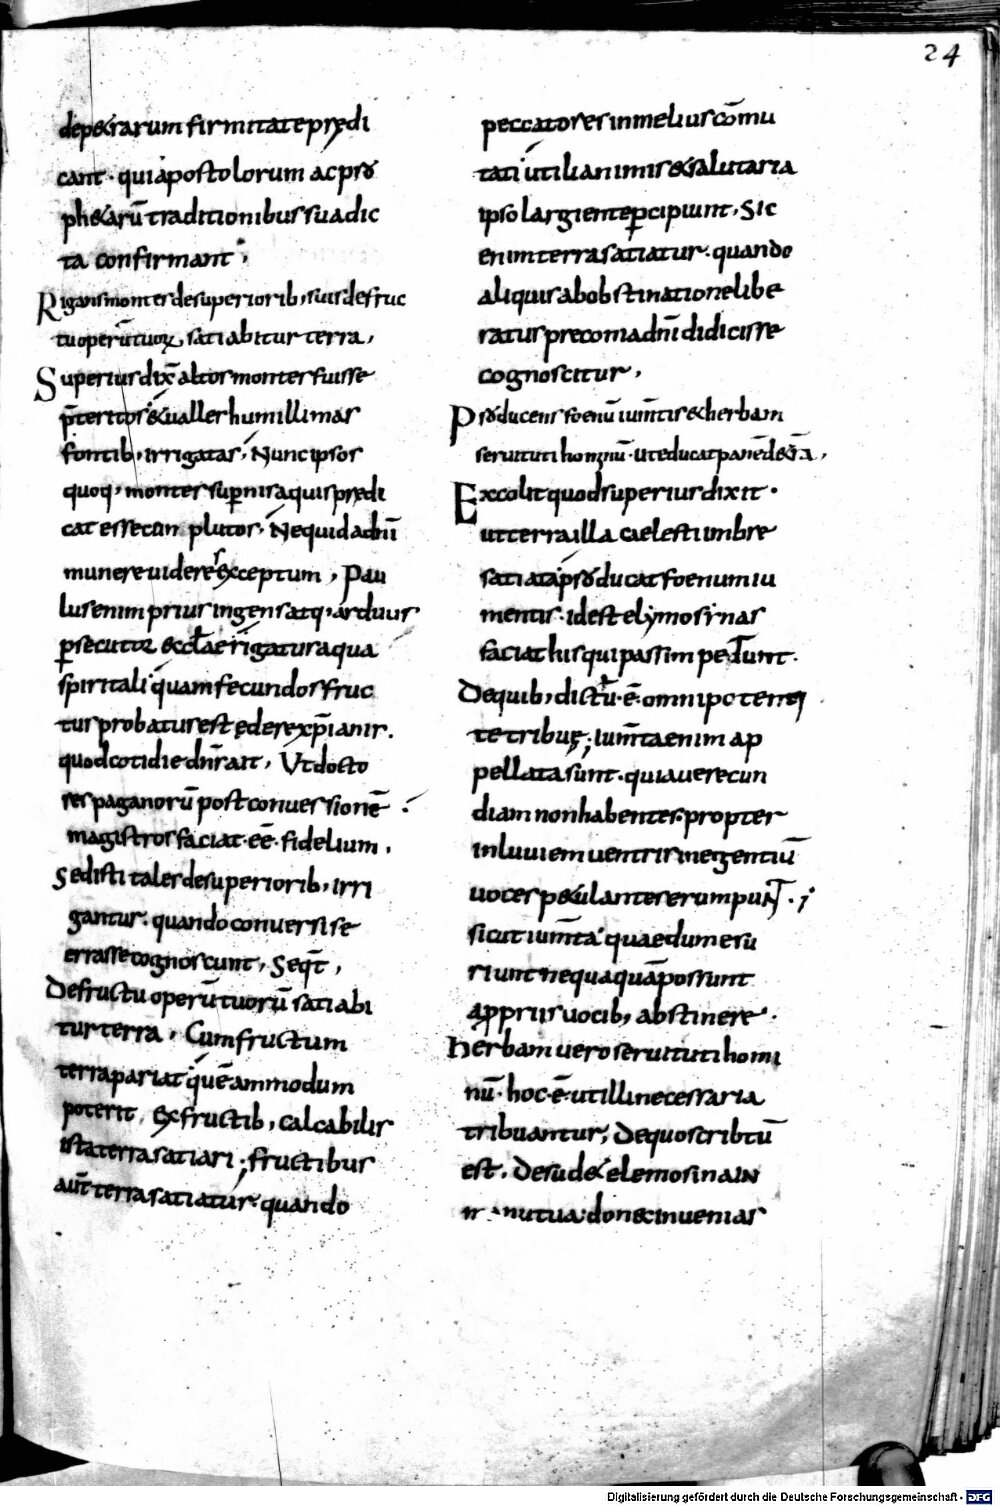 24
depetrarum firmitate prędi
cant · qui apostolorum ac pro
phetarū traditionibus sua dic
ta confirmant ·
Rigans montes de superiorib; suis de fruc
tu operū tuorꝝ, satiabitur terra,
Superius dix̄ altos montes fuisse
p̄teritos & ualles humillimas
fontib; irrigatas, Nunc ipsos
quoq; montes supernis aquis prędi
cat esse conplutos · Ne quid ad dn̄i
munere uideres exceptum, Pau
lus enim prius ingens atq; arduus
ꝑsecutor eccl̄ae rigatur aqua
spiritali · quam fecundos fruc
tus probatus est edere xp̄ianis.
quod cotidie dn̄s ait, Ut docto
res paganorū post conuersionē
magistros faciat · eē · fidelium,
Sed isti tales de superiorib; irri
gantur · quando conuersi se
errasse cognoscunt, Seqt̄,
De fructu operū tuorū satiabi
tur terra, Cum fructum
terra pariat quēammodum
poterit, ex fructib; calcabilis
ista terra satiari; fructibus
aut̄ terra satiatur · quando
peccatores in melius cōmu
tati utilia nimis & salutaria
ipso largiente ꝑcipiunt, Sic
enim terra satiatur · quando
aliquis ab obstinatione libe
ratus preconia dn̄i didicisse
cognoscitur,
Producens foenū ium̄tis & herbam
seruituti hominū · ut educat panē de tr̄a,
Excolit quod superius dixit ·
ut terra illa caelesti umbre
satiata producat foenum iu
mentis · id est elymosinas
faciat his qui passim petunt ·
De quib; dictū · ē · omni petenti
te tribue; ium̄ta enim ap
pellata sunt · quia uerecun
diam non habentes · propter
inluuiem uentris inergentiū
uoces petulantes erumpunt ·
sicut ium̄ta quae dum esu
riunt nequaquā possunt
a propriis uocib; abstinere ·
herbam uero seruituti homi
nū · hoc · ē · ut illi necessaria
tribuantur; De quo scribtū
est, Desudet elemosina in
manu tua · donec inuenias
Digitalisierung gefördert durch die Deutsche Forschungsgemeinschaft - DFG